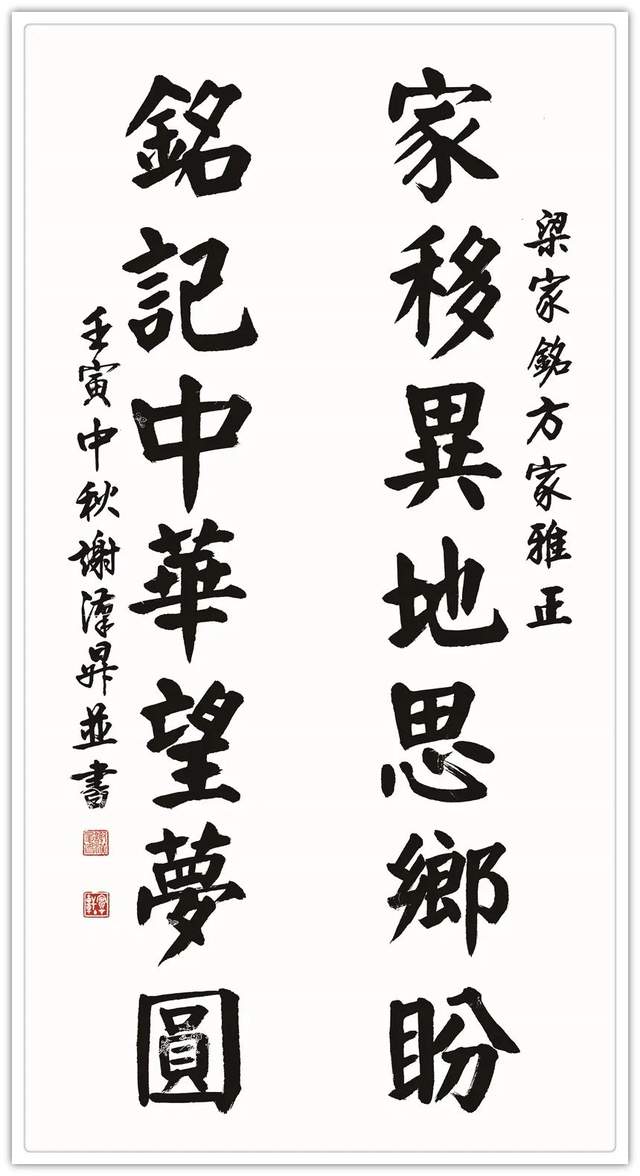 梁家銘方家雅正
家移異地思鄉盼
銘記中華望夢圓
壬寅中秋謝漢昇並書